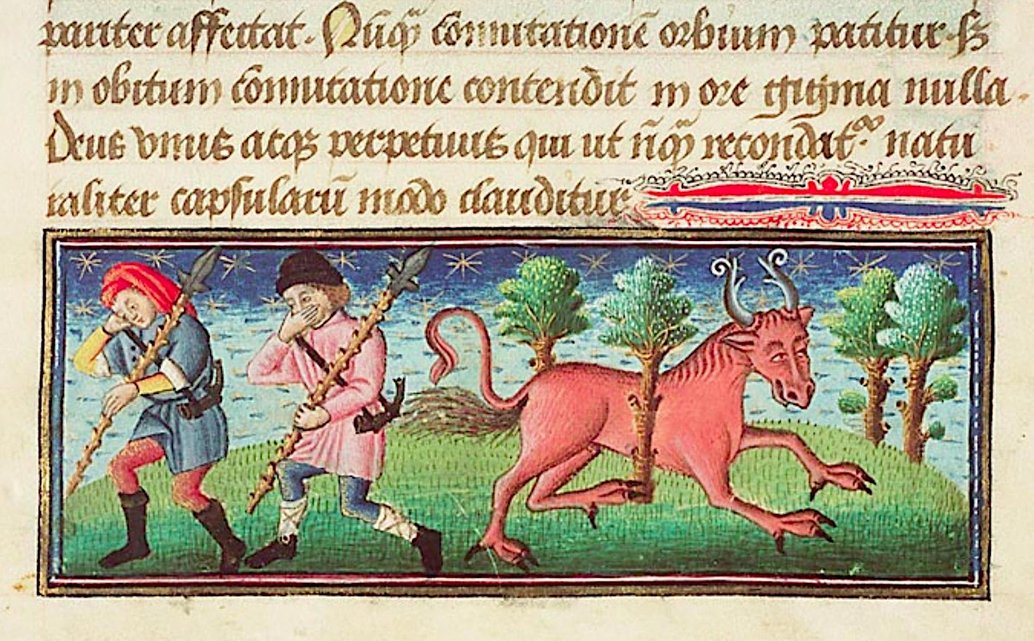 pariter affectat. Nūqꝫ cōmutationē orbium patitur sꝫ
in obitum cōmutatione contendit in ore nulla
Deus vnus atqꝫ perpetuus qui ut nūqꝫ recondat᷑. natu
raliter capsularū modo clauditur